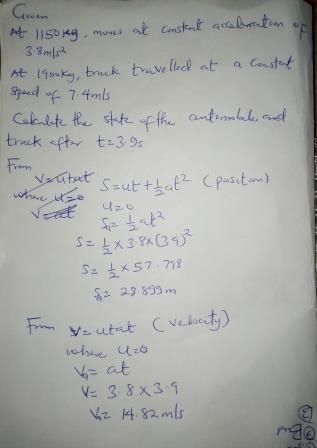 Given
At 1150kg, moves at constant acceleration of
3.8m/s²
At 1900kg, truck travelled at a constant
speed of 7.4m/s
Calculate the state of the automobile and
truck after t=3.9s
From
V=u+at S=ut+½at² (position)
where u=0 u=0
V=at S=½at²
S=½×3.8×(3.9)²
S=½×57.798
S=28.899m
From V=u+at (velocity)
where u=0
V=at
V=3.8×3.9
V=14.82m/s